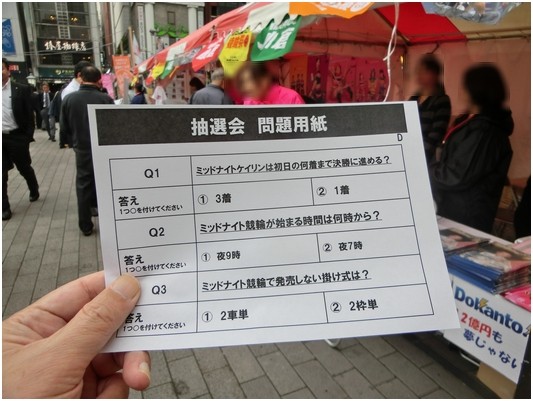 抽選会 問題用紙
D
Q1
ミッドナイトケイリンは初日の何着まで決勝に進める？
答え
1つ○を付けてください
① 3着
② 1着
Q2
ミッドナイト競輪が始まる時間は何時から？
答え
1つ○を付けてください
① 夜9時
② 夜7時
Q3
ミッドナイト競輪で発売しない掛け式は？
答え
1つ○を付けてください
① 2車単
② 2枠単
DoKanto
2億円も
夢じゃない
椿屋珈琲店